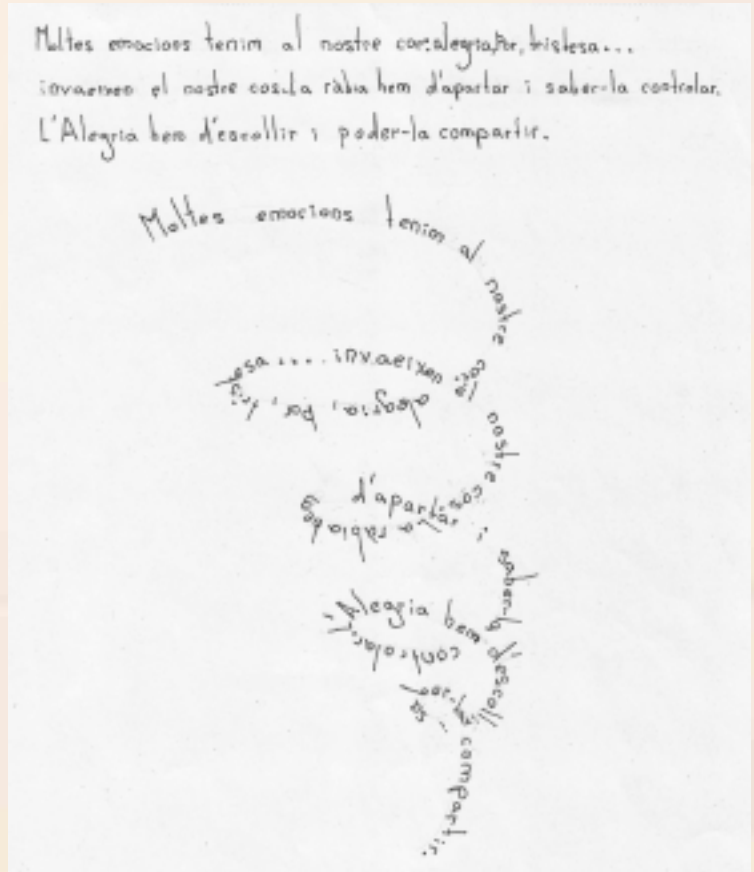 Moltes emocions tenim al nostre cor:alegria,Por, tristesa...
invaeixen el nostre cos.La ràbia hem d'apartar i saber-la controlar.
L'Alegria hem d'escollir i poder-la compartir.
Moltes emocions tenim al nostre cor:
alegria, por, tristesa.... invaeixen el
nostre cos. la ràbia hem
d'apartar i saber-la
controlar. L'Alegria hem d'escollir
i compartir.